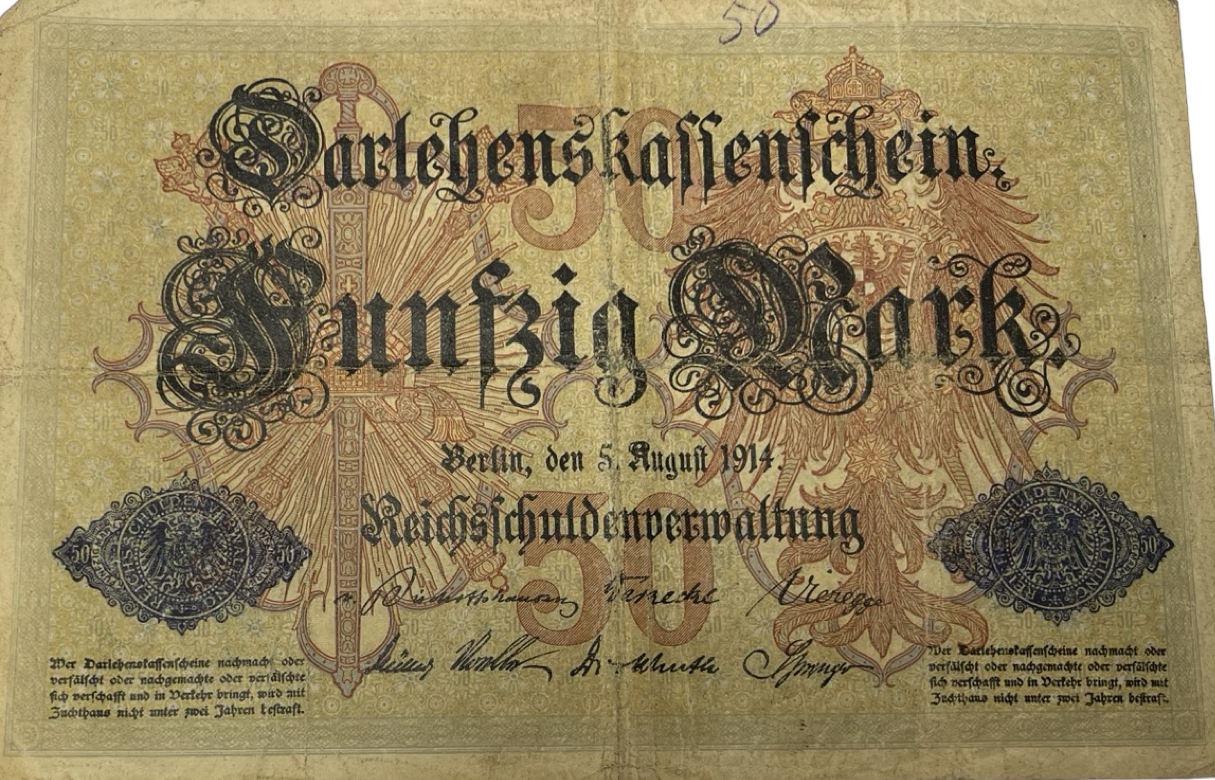 50
Darlehenskassenschein.
50
Funfzig Mark.
Berlin, den 5. August 1914.
Reichsschuldenverwaltung
50
50 REICHSSCHULDENVERWALTUNG 50
50 REICHSSCHULDENVERWALTUNG 50
v. Bischoffshausen Warnecke Vieregge
Müller Dr.
Wer Darlehenskassenscheine nachmacht oder
verfälscht oder nachgemachte oder verfälschte
sich verschafft und in Verkehr bringt, wird mit
Zuchthaus nicht unter zwei Jahren bestraft.
Wer Darlehenskassenscheine nachmacht oder
verfälscht oder nachgemachte oder verfälschte
sich verschafft und in Verkehr bringt, wird mit
Zuchthaus nicht unter zwei Jahren bestraft.